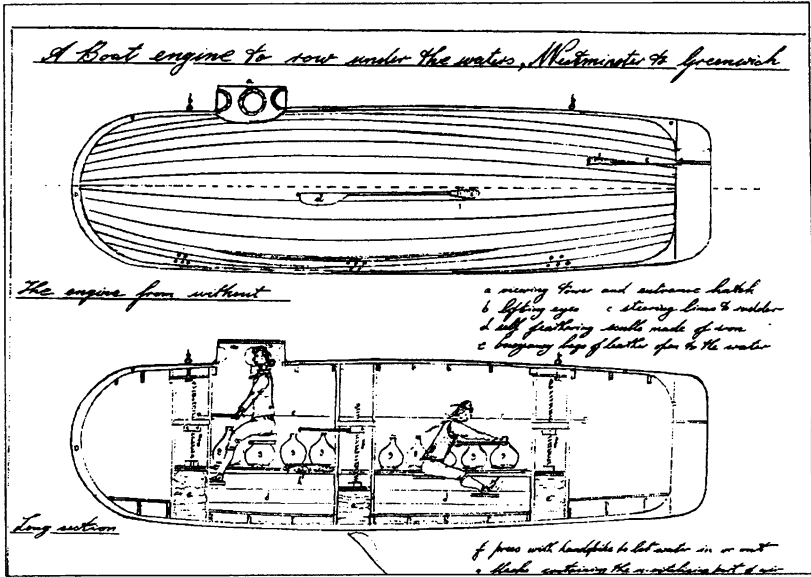 A Boat engine to row under the waters, Westminster to Greenwich
The engine from without
a viewing tower and entrance hatch
b lifting eyes c steering lines to rudder
d self feathering sculls made of iron
e buoyancy bags of leather open to the water
Long section
f press with handspike to let water in or out
flasks containing the revitalising part of air